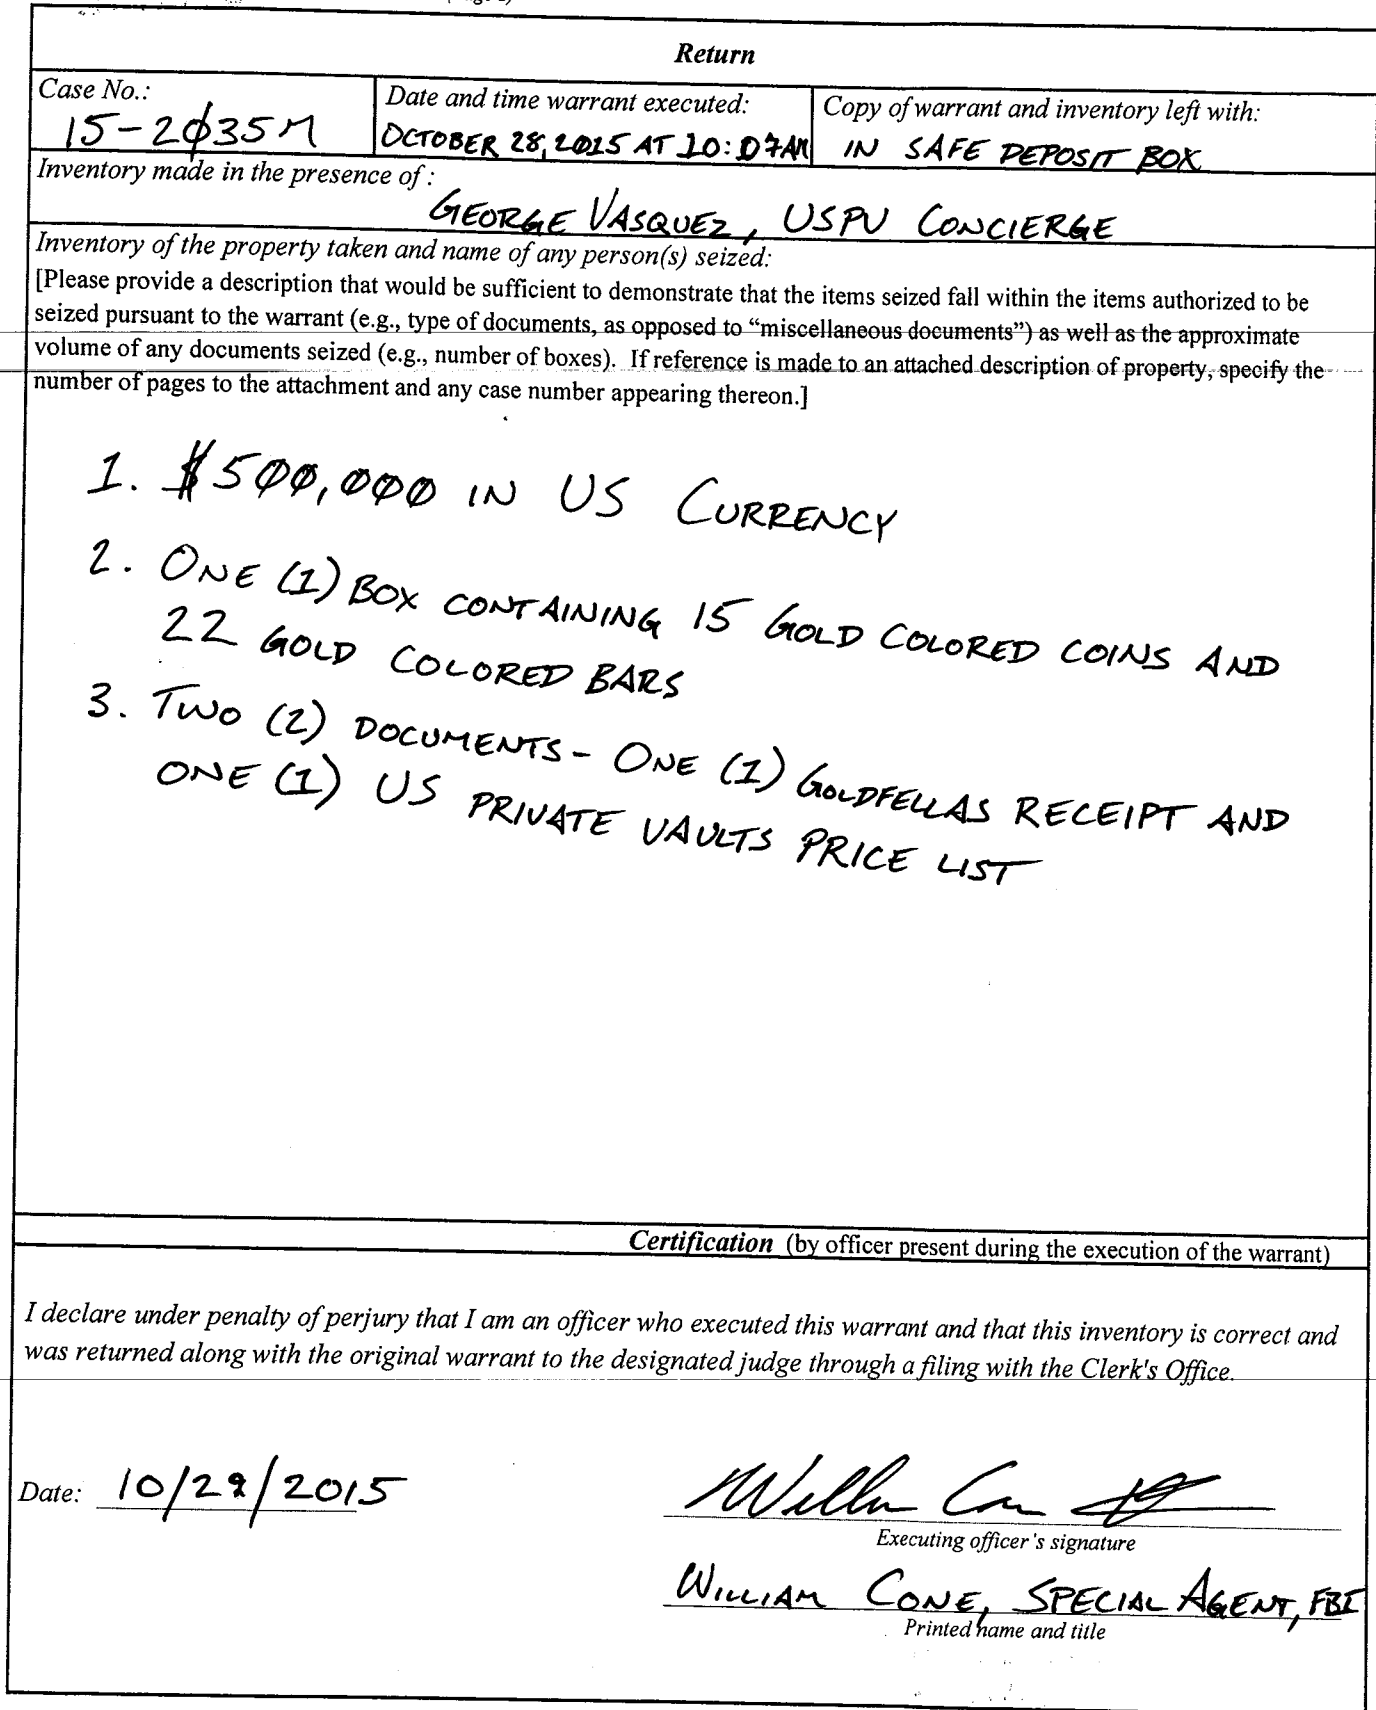 Return
Case No.:
15-2035M
Date and time warrant executed:
OCTOBER 28, 2015 AT 10:07AM
Copy of warrant and inventory left with:
IN SAFE DEPOSIT BOX
Inventory made in the presence of :
GEORGE VASQUEZ, USPV CONCIERGE
Inventory of the property taken and name of any person(s) seized:
[Please provide a description that would be sufficient to demonstrate that the items seized fall within the items authorized to be
seized pursuant to the warrant (e.g., type of documents, as opposed to “miscellaneous documents”) as well as the approximate
volume of any documents seized (e.g., number of boxes).  If reference is made to an attached description of property, specify the
number of pages to the attachment and any case number appearing thereon.]
1. $500,000 IN US CURRENCY
2. ONE (1) BOX CONTAINING 15 GOLD COLORED COINS AND
22 GOLD COLORED BARS
3. TWO (2) DOCUMENTS - ONE (1) GOLDFELLAS RECEIPT AND
ONE (1) US PRIVATE VAULTS PRICE LIST
Certification (by officer present during the execution of the warrant)
I declare under penalty of perjury that I am an officer who executed this warrant and that this inventory is correct and
was returned along with the original warrant to the designated judge through a filing with the Clerk's Office.
Date: 10/29/2015
Executing officer's signature
WILLIAM CONE, SPECIAL AGENT, FBI
Printed name and title